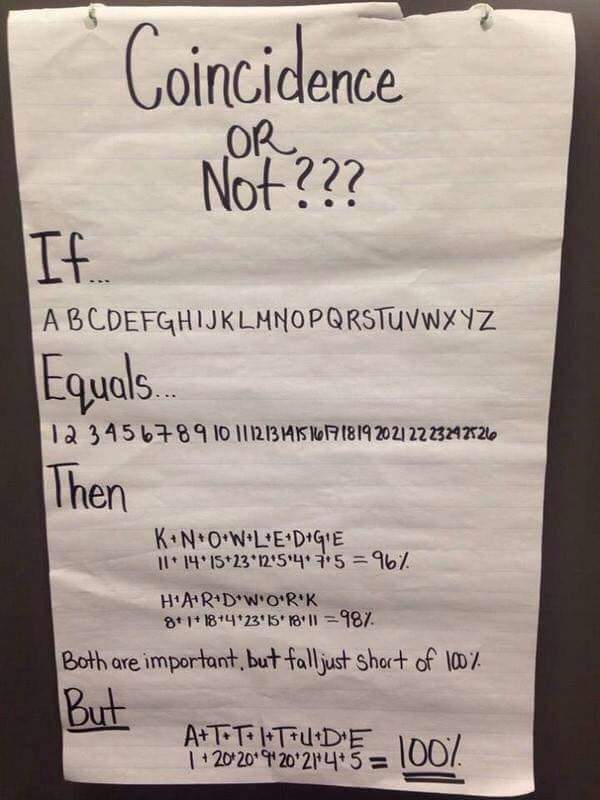 Coincidence
OR
Not???
If...
A B C D E F G H I J K L M N O P Q R S T U V W X Y Z
Equals...
1 2 3 4 5 6 7 8 9 10 11 12 13 14 15 16 17 18 19 20 21 22 23 24 25 26
Then
K+N+O+W+L+E+D+G+E
11+14+15+23+12+5+4+7+5=96%
H+A+R+D+W+O+R+K
8+1+18+4+23+15+18+11=98%
Both are important, but fall just short of 100%
But
A+T+T+I+T+U+D+E
1+20+20+9+20+21+4+5=100%